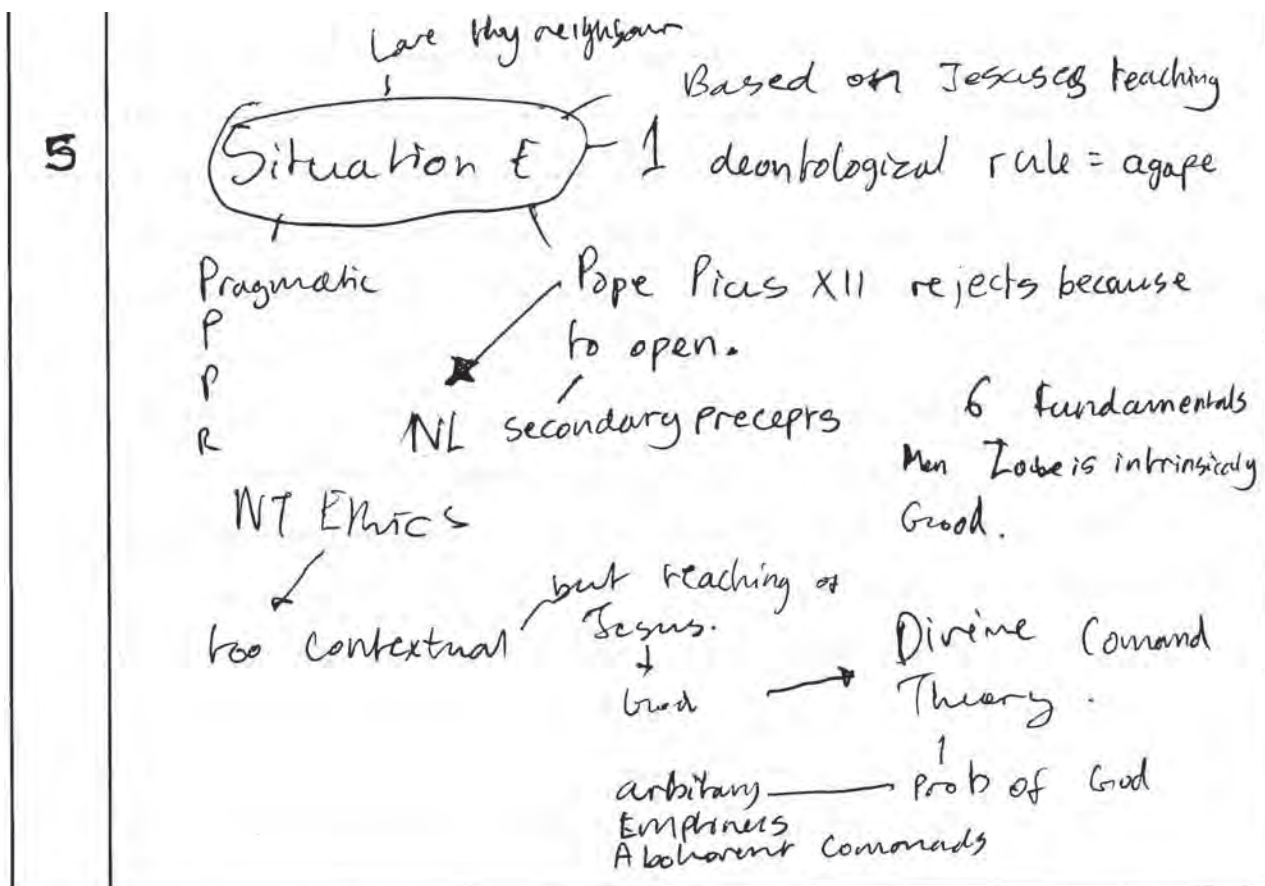 Love thy neighbour
Based on Jesuses teaching
5
Situation E
1 deontological rule = agape
Pragmatic
P
P
R
Pope Pius XII rejects because
to open.
NL secondary precepts
6 Fundamentals
Love is intrinsicaly
Good.
NT Ethics
too contextual
but teaching of
Jesus.
God
Divine Comand
Theory.
Prob of God
arbitary
Emptiness
Abohorent commads